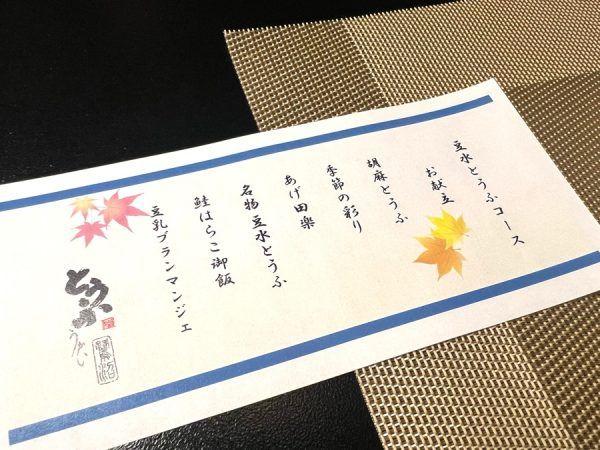 豆水とうふコース
お献立
胡麻とうふ
季節の彩り
あげ田楽
名物豆水とうふ
鮭はらこ御飯
豆乳ブランマンジェ
とうふ
うかい